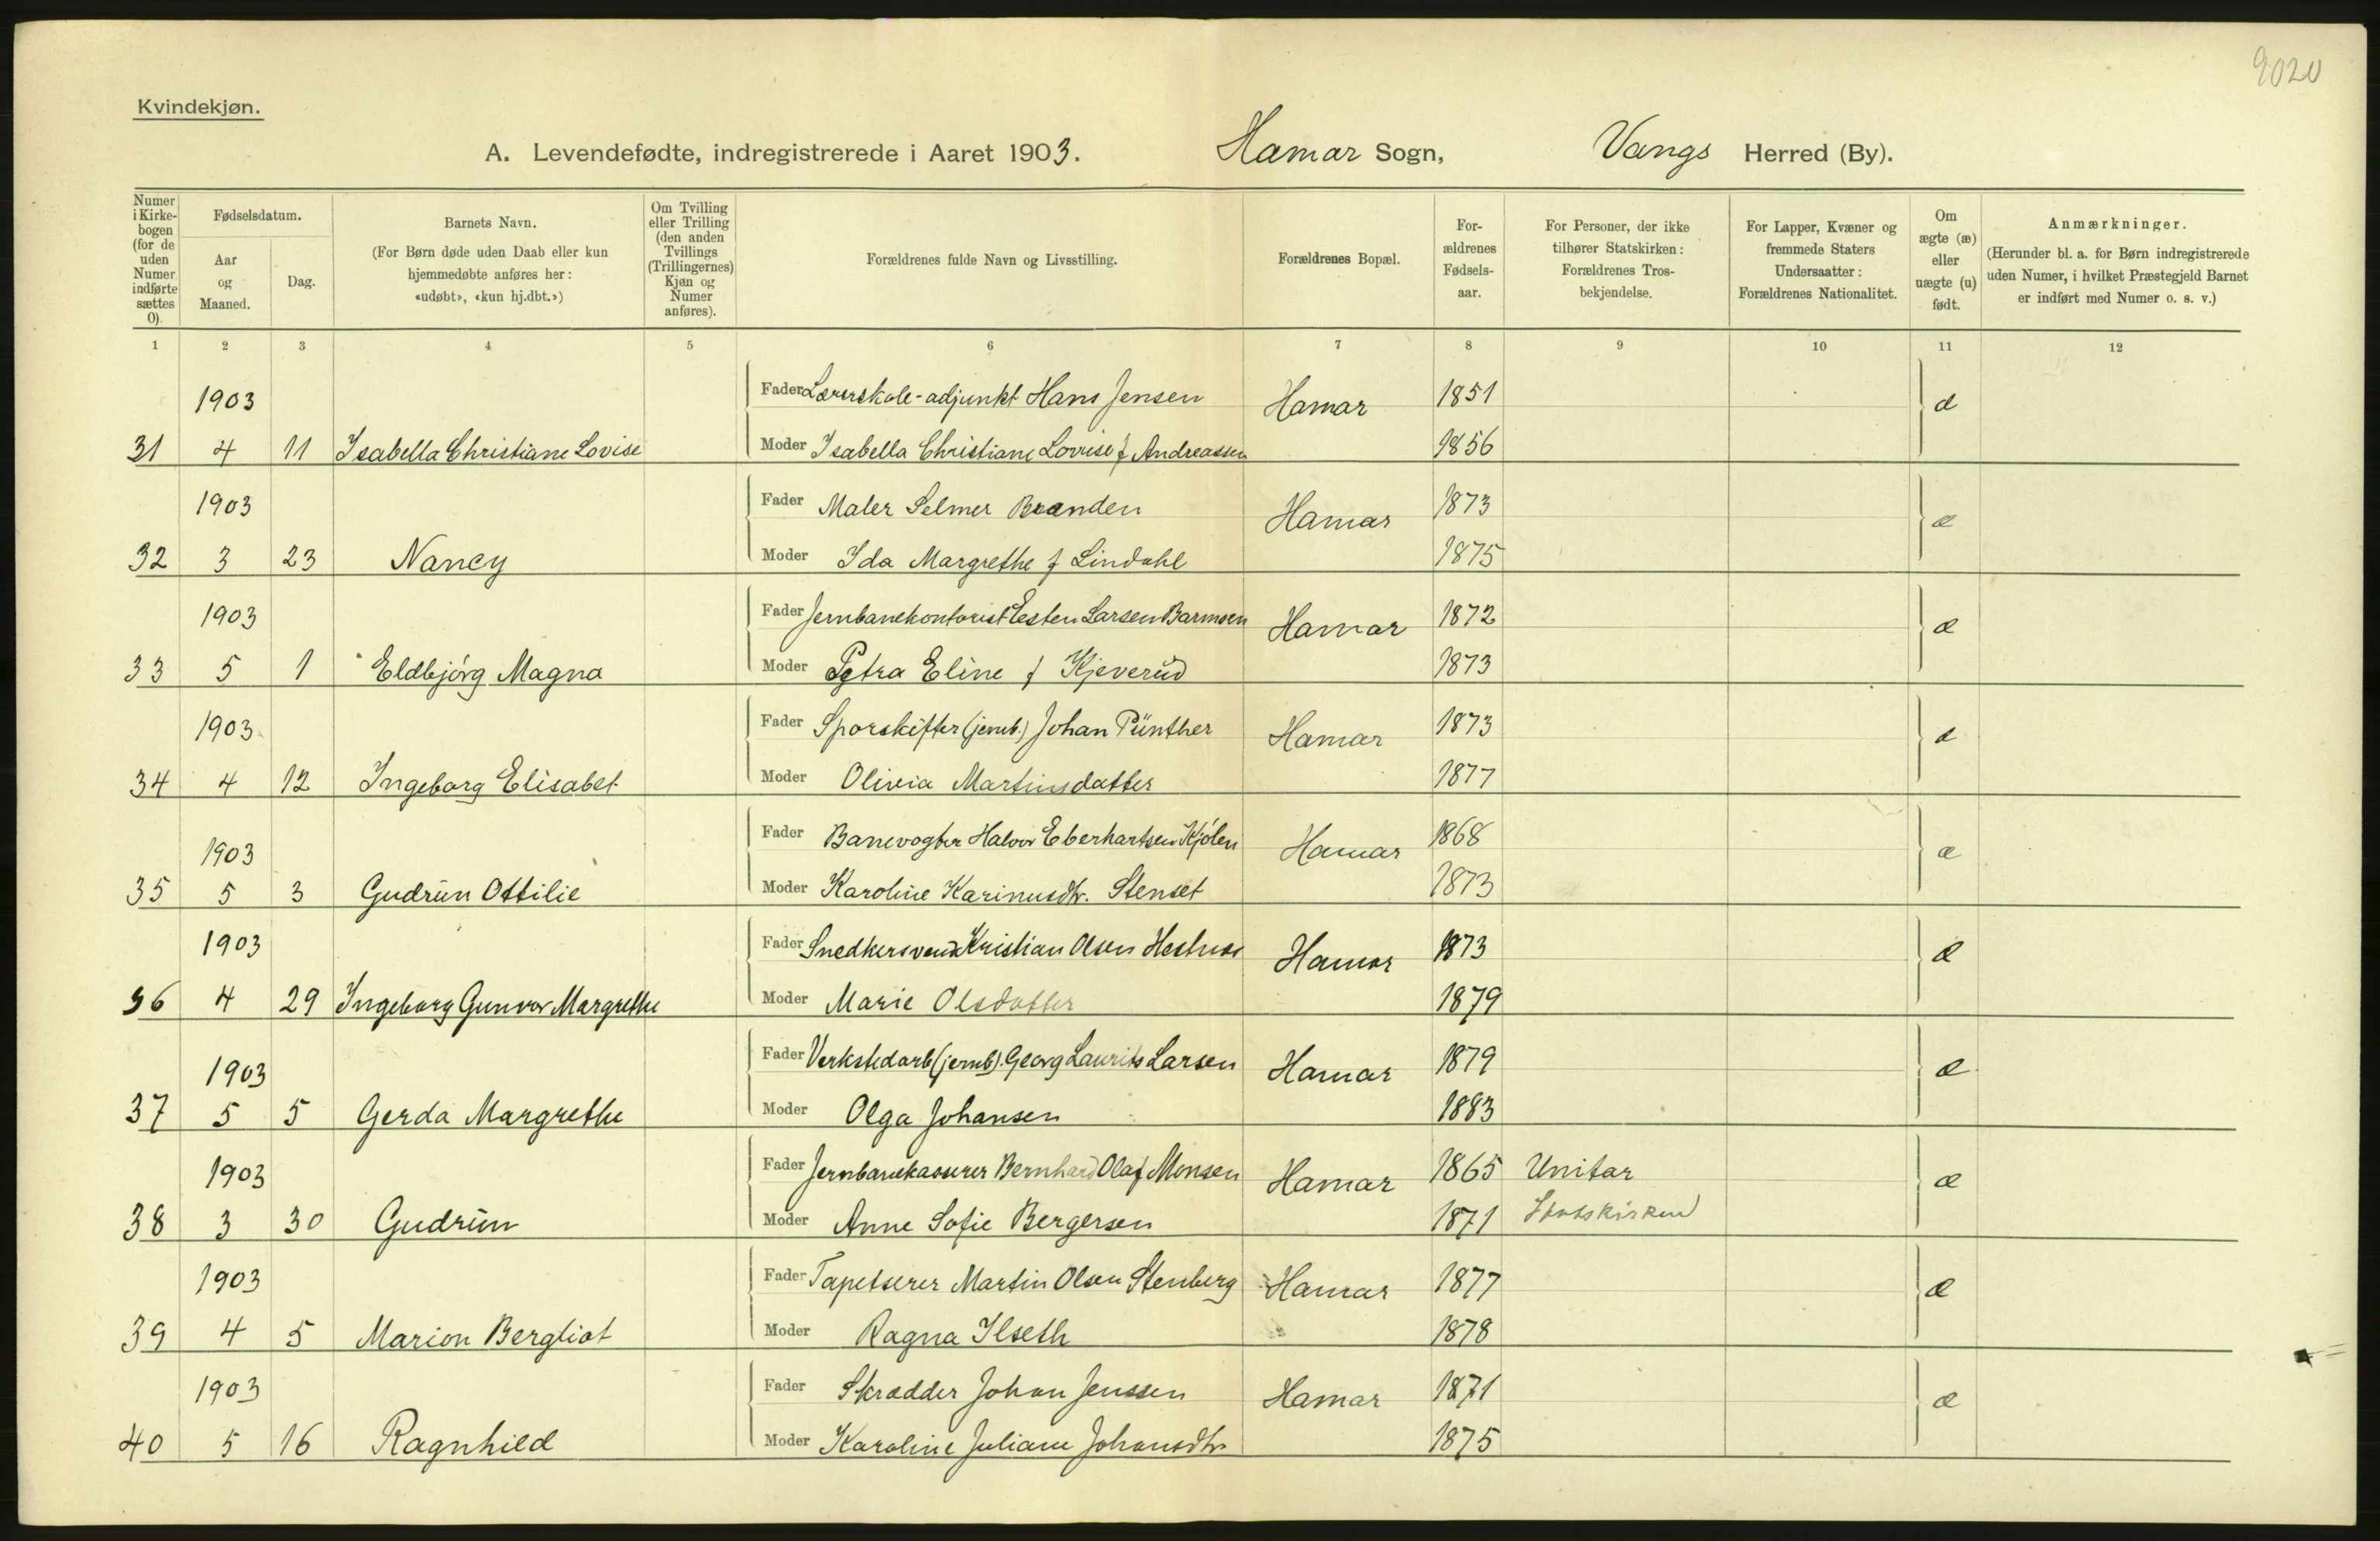 9020
Kvindekjøn.
A. Levendefødte, indregistrerede i Aaret 1903. Hamar Sogn, Vangs Herred (By).
Numer i Kirke-bogen (for de uden Numer indførte sættes 0).
Fødselsdatum.
Aar og Maaned.
Dag.
Barnets Navn.
(For Børn døde uden Daab eller kun hjemmedøbte anføres her: «udøbt», «kun hj.dbt.»)
Om Tvilling eller Trilling (den anden Tvillings (Trillingernes) Kjøn og Numer anføres).
Forældrenes fulde Navn og Livsstilling.
Forældrenes Bopæl.
For-ældrenes Fødsels-aar.
For Personer, der ikke tilhører Statskirken: Forældrenes Tros-bekjendelse.
For Lapper, Kvæner og fremmede Staters Undersaatter: Forældrenes Nationalitet.
Om ægte (æ) eller uægte (u) født.
Anmærkninger.
(Herunder bl. a. for Børn indregistrerede uden Numer, i hvilket Præstegjeld Barnet er indført med Numer o. s. v.)
1 2 3 4 5 6 7 8 9 10 11 12
1903 Fader Lærerskole-adjunkt Hans Jensen Hamar 1851 æ
31 4 11 Isabella Christiane Lovise Moder Isabella Christiane Lovise f Andreassen 1856
1903 Fader Maler Selmer Branden Hamar 1873 æ
32 3 23 Nancy Moder Ida Margrethe f Lindahl 1875
1903 Fader Jernbanekontorist Esten Larsen Barmoen Hamar 1872 æ
33 5 1 Eldbjörg Magna Moder Petra Eline f Kjeverud 1873
1903 Fader Sporskifter (jernb.) Johan Pünther Hamar 1873 æ
34 4 12 Ingeborg Elisabet Moder Olivia Martinsdatter 1877
1903 Fader Banevogter Halvor Eberhartsen Kjólen Hamar 1868 æ
35 5 3 Gudrun Ottilie Moder Karoline Karinusdtr. Stenset 1873
1903 Fader Snedkersvend Kristian Olsen Hamar 1873 æ
36 4 29 Ingeborg Gunvor Margrethe Moder Marie Olsdatter 1879
1903 Fader Verkstedarb (jernb). Georg Laurits Larsen Hamar 1879 æ
37 5 5 Gerda Margrethe Moder Olga Johansen 1883
1903 Fader Jernbanekasserer Bernhard Olaf Monsen Hamar 1865 Unitar æ
38 3 30 Gudrun Moder Anne Sofie Bergersen 1871 Statskirken
1903 Fader Tapetserer Martin Olsen Stenberg Hamar 1877 æ
39 4 5 Marion Bergliot Moder Ragna Ilseth 1878
1903 Fader Skrædder Johan Jenssen Hamar 1871 æ
40 5 16 Ragnhild Moder Karoline Juliane Johansdtr 1875